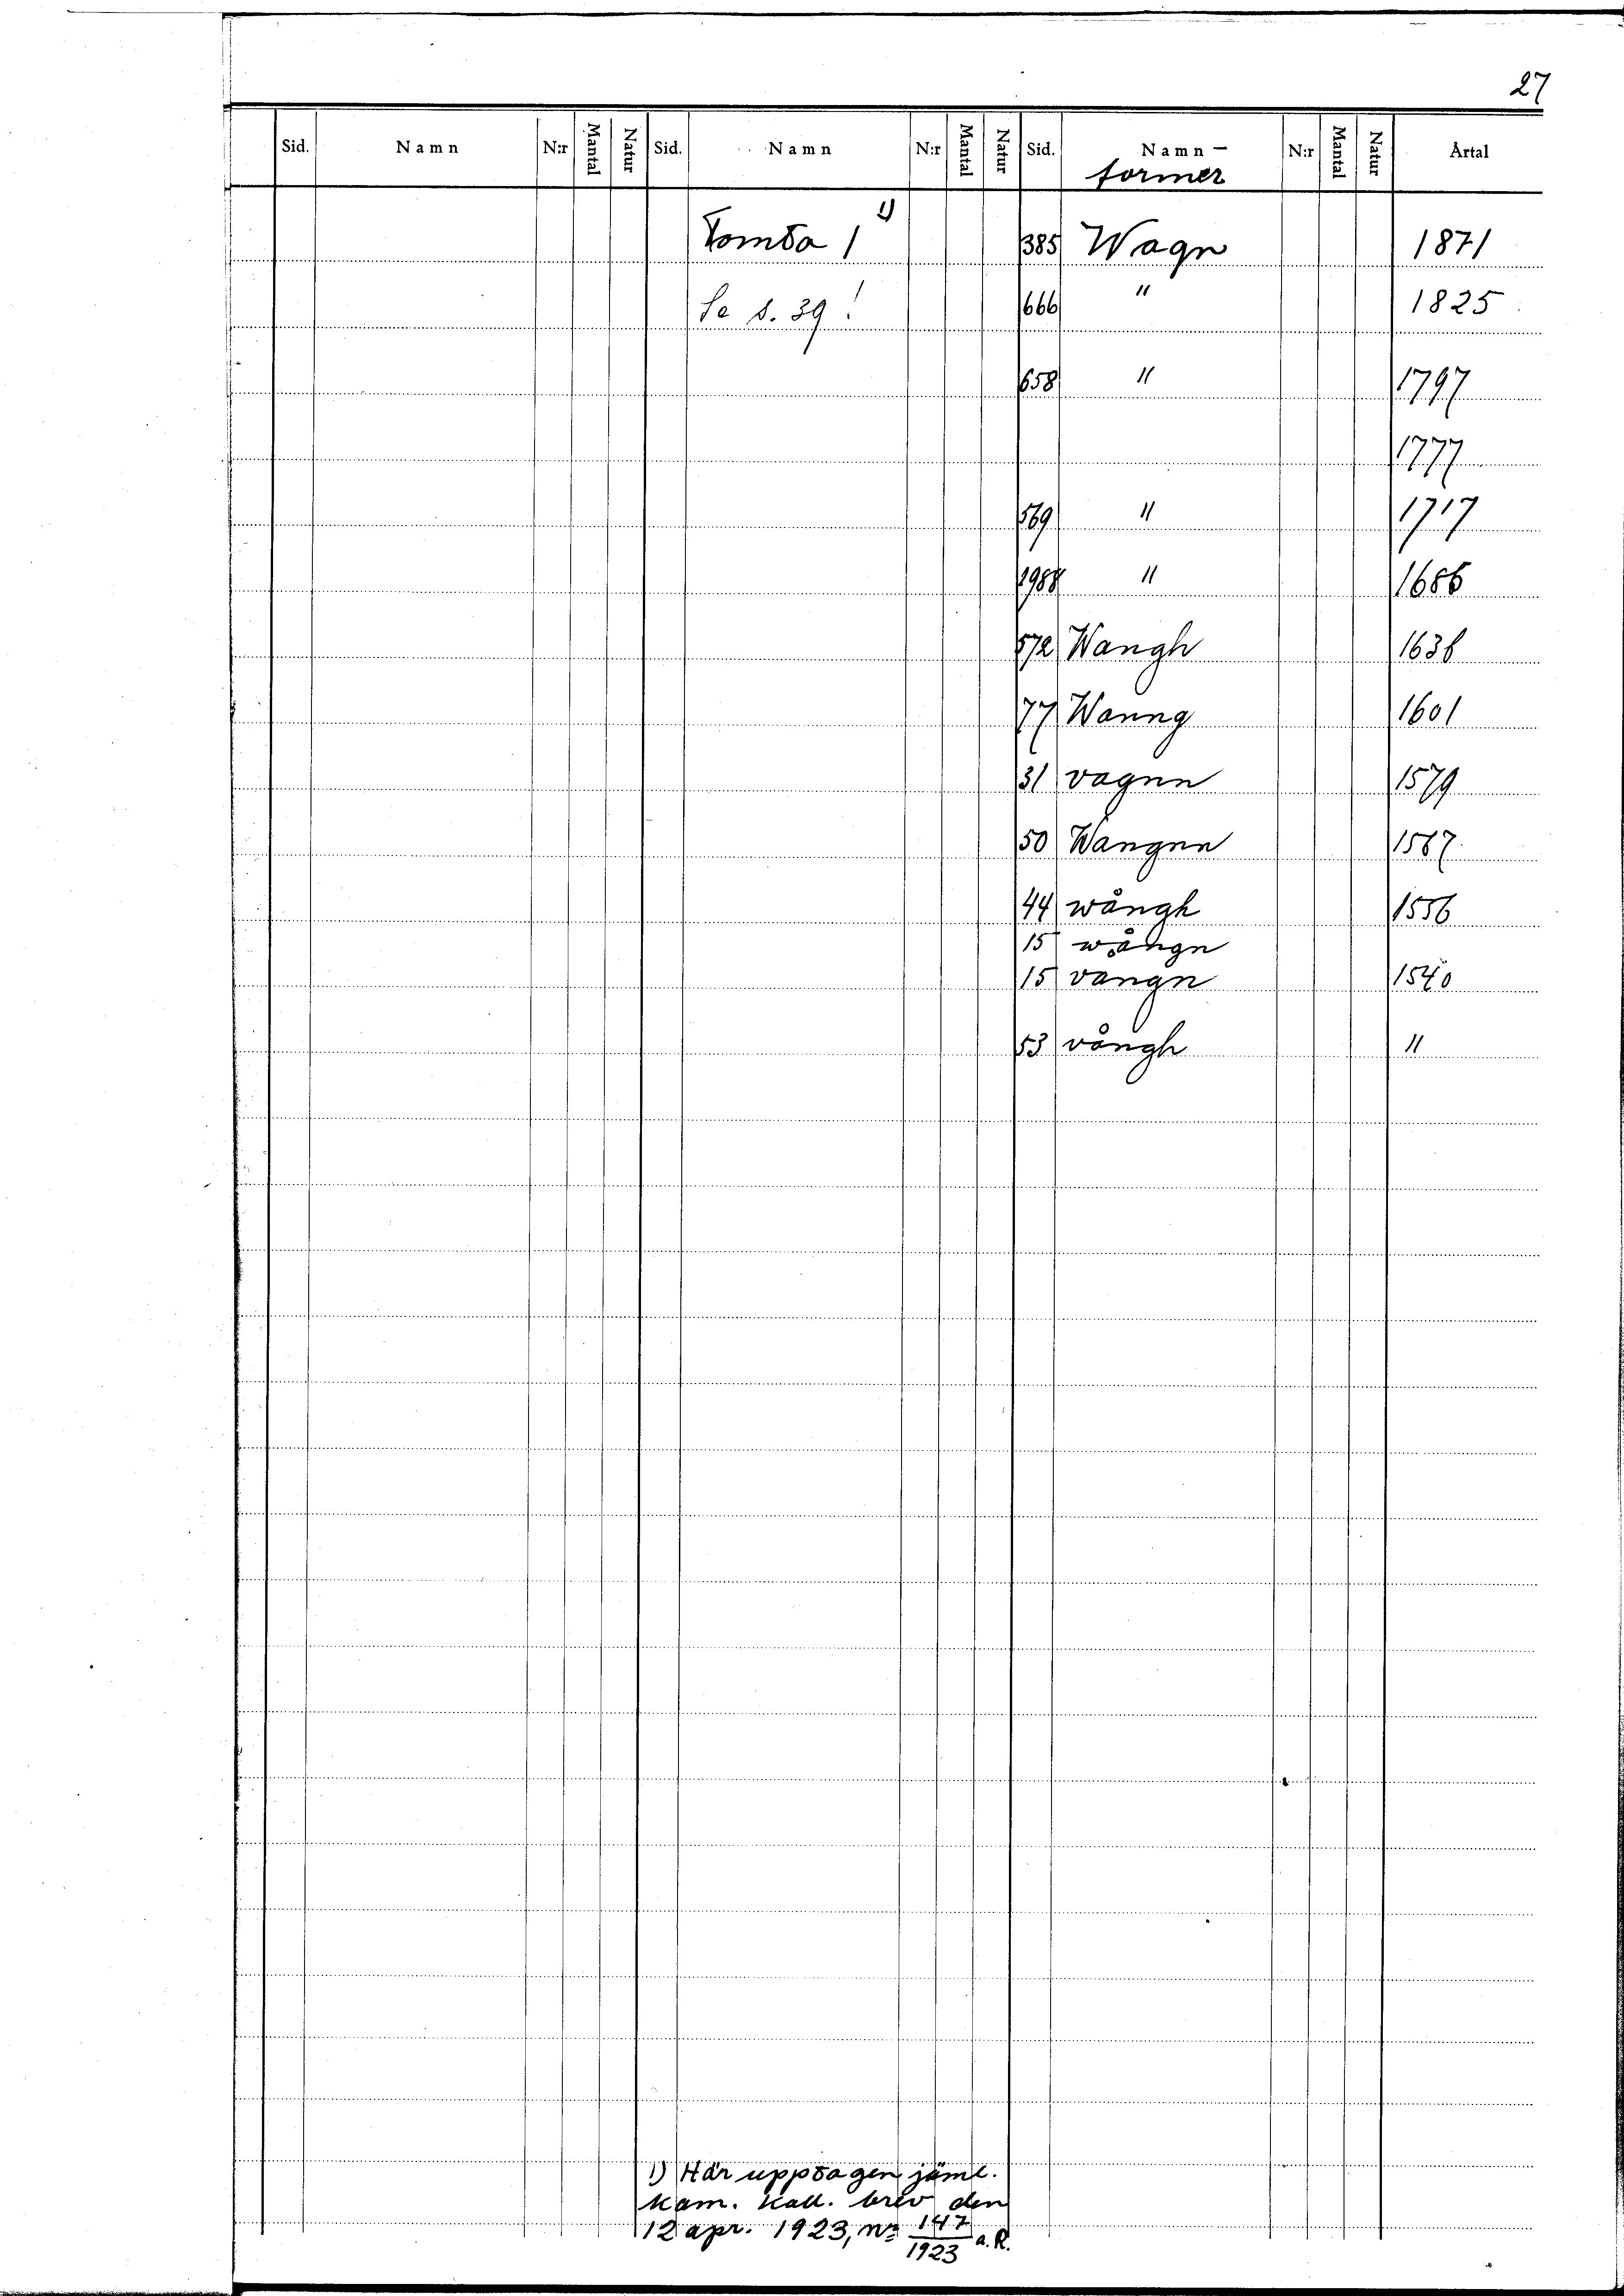 27
Sid. Namn N:r Mantal Natur Sid. Namn N:r Mantal Natur Sid. Namn- N:r Mantal Natur Årtal
former
Tomta 1 1) 385 Wagn 1871
Se s. 39! 666 " 1825
658 " 1797
1777
569 " 1717
1988 " 1686
572 Wangh 1638
77 Wanng 1601
31 vagnn 1579
50 Wangnn 1567
44 wångh 1556
15 wångn
15 vangn 1540
53 vångh "
1) Här upptagen jäml.
Kam. Koll. brev den
12 apr. 1923, No 147/1923 a.R.